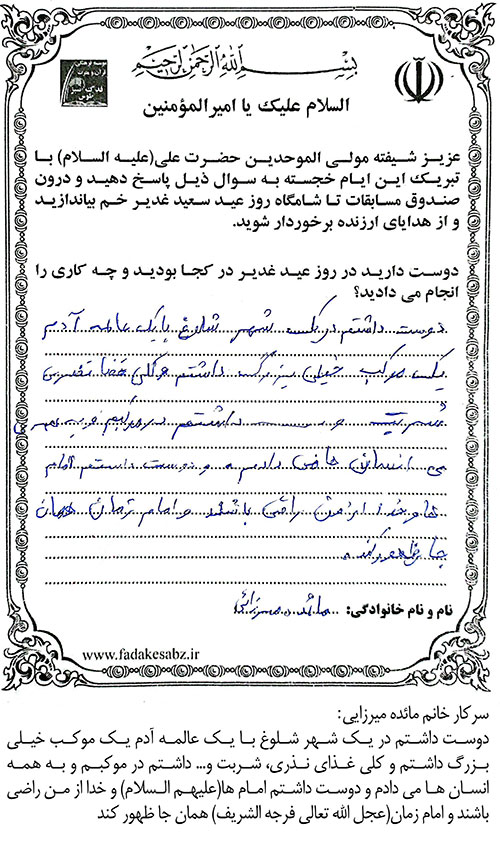 بسم الله الرحمن الرحیم
السلام علیک یا امیرالمؤمنین
عزیز شیفته مولی الموحدین حضرت علی(علیه السلام) با
تبریک این ایام خجسته به سوال ذیل پاسخ دهید و درون
صندوق مسابقات تا شامگاه روز عید سعید غدیر خم بیاندازید
و از هدایای ارزنده برخوردار شوید.
دوست دارید در روز عید غدیر در کجا بودید و چه کاری را
انجام می دادید؟
دوست داشتم در یک شهر شلوغ با یک عالمه آدم
یک موکب خیلی بزرگ داشتم و کلی غذا نذری
شربت و ... داشتم در موکبم و به همه ی
ی انسان ها می دادم و دوست داشتم امام
ها و خدا از من راضی باشند و امام زمان همان
جا ظهور کند.
نام و نام خانوادگی: مائده میرزائی
www.fadakesabz.ir
سرکار خانم مائده میرزایی:
دوست داشتم در یک شهر شلوغ با یک عالمه آدم یک موکب خیلی
بزرگ داشتم و کلی غذای نذری، شربت و... داشتم در موکبم و به همه
انسان ها می دادم و دوست داشتم امام ها(علیهم السلام) و خدا از من راضی
باشند و امام زمان(عجل الله تعالی فرجه الشریف) همان جا ظهور کند